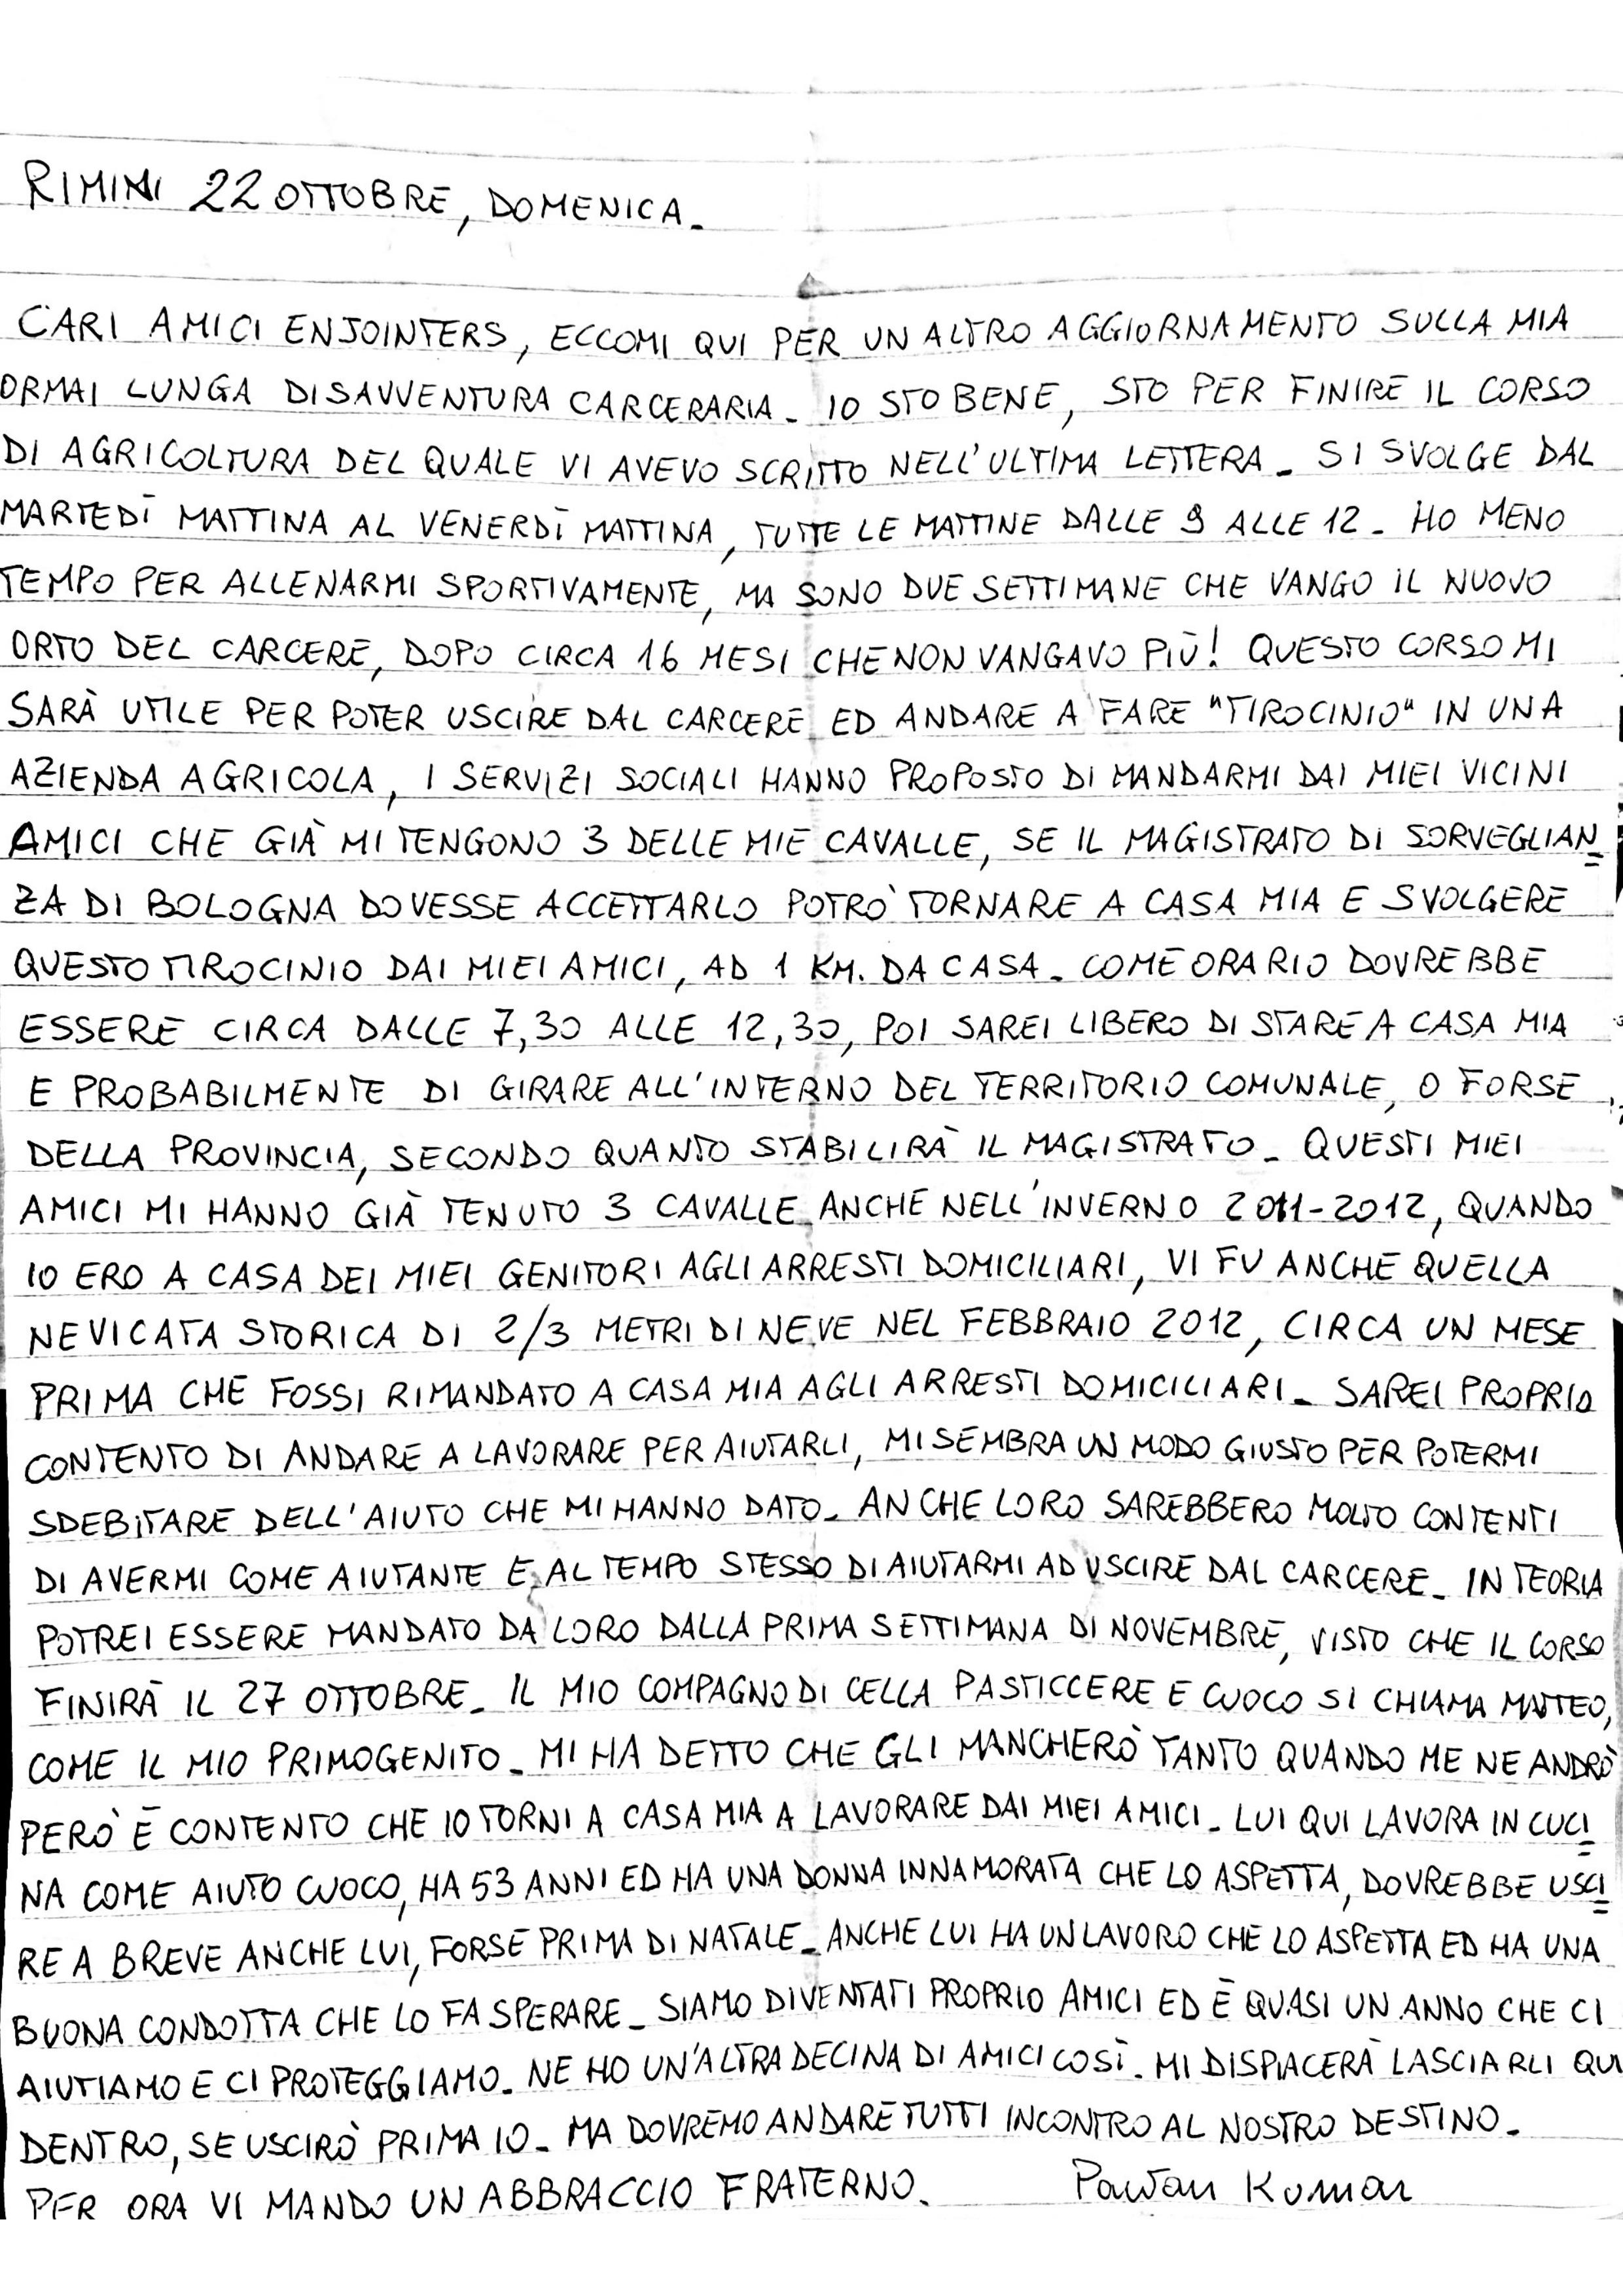 RIMINI 22 OTTOBRE, DOMENICA.
CARI AMICI ENJOINTERS, ECCOMI QUI PER UN ALTRO AGGIORNAMENTO SULLA MIA
ORMAI LUNGA DISAVVENTURA CARCERARIA. IO STO BENE, STO PER FINIRE IL CORSO
DI AGRICOLTURA DEL QUALE VI AVEVO SCRITTO NELL'ULTIMA LETTERA. SI SVOLGE DAL
MARTEDÌ MATTINA AL VENERDÌ MATTINA, TUTTE LE MATTINE DALLE 9 ALLE 12. HO MENO
TEMPO PER ALLENARMI SPORTIVAMENTE, MA SONO DUE SETTIMANE CHE VANGO IL NUOVO
ORTO DEL CARCERE, DOPO CIRCA 16 MESI CHE NON VANGAVO PIÙ! QUESTO CORSO MI
SARÀ UTILE PER POTER USCIRE DAL CARCERE ED ANDARE A FARE "TIROCINIO" IN UNA
AZIENDA AGRICOLA, I SERVIZI SOCIALI HANNO PROPOSTO DI MANDARMI DAI MIEI VICINI
AMICI CHE GIÀ MI TENGONO 3 DELLE MIE CAVALLE, SE IL MAGISTRATO DI SORVEGLIAN=
ZA DI BOLOGNA DOVESSE ACCETTARLO POTRÒ TORNARE A CASA MIA E SVOLGERE
QUESTO TIROCINIO DAI MIEI AMICI, AD 1 KM. DA CASA. COME ORARIO DOVREBBE
ESSERE CIRCA DALLE 7,30 ALLE 12,30, POI SAREI LIBERO DI STARE A CASA MIA
E PROBABILMENTE DI GIRARE ALL'INTERNO DEL TERRITORIO COMUNALE, O FORSE
DELLA PROVINCIA, SECONDO QUANTO STABILIRÀ IL MAGISTRATO. QUESTI MIEI
AMICI MI HANNO GIÀ TENUTO 3 CAVALLE ANCHE NELL'INVERNO 2011-2012, QUANDO
IO ERO A CASA DEI MIEI GENITORI AGLI ARRESTI DOMICILIARI, VI FU ANCHE QUELLA
NEVICATA STORICA DI 2/3 METRI DI NEVE NEL FEBBRAIO 2012, CIRCA UN MESE
PRIMA CHE FOSSI RIMANDATO A CASA MIA AGLI ARRESTI DOMICILIARI. SAREI PROPRIO
CONTENTO DI ANDARE A LAVORARE PER AIUTARLI, MI SEMBRA UN MODO GIUSTO PER POTERMI
SDEBITARE DELL'AIUTO CHE MI HANNO DATO. ANCHE LORO SAREBBERO MOLTO CONTENTI
DI AVERMI COME AIUTANTE E AL TEMPO STESSO DI AIUTARMI AD USCIRE DAL CARCERE. IN TEORIA
POTREI ESSERE MANDATO DA LORO DALLA PRIMA SETTIMANA DI NOVEMBRE, VISTO CHE IL CORSO
FINIRÀ IL 27 OTTOBRE. IL MIO COMPAGNO DI CELLA PASTICCERE E CUOCO SI CHIAMA MATTEO,
COME IL MIO PRIMOGENITO. MI HA DETTO CHE GLI MANCHERÒ TANTO QUANDO ME NE ANDRÒ
PERÒ È CONTENTO CHE IO TORNI A CASA MIA A LAVORARE DAI MIEI AMICI. LUI QUI LAVORA IN CUCI=
NA COME AIUTO CUOCO, HA 53 ANNI ED HA UNA DONNA INNAMORATA CHE LO ASPETTA, DOVREBBE USCI=
RE A BREVE ANCHE LUI, FORSE PRIMA DI NATALE. ANCHE LUI HA UN LAVORO CHE LO ASPETTA ED HA UNA
BUONA CONDOTTA CHE LO FA SPERARE. SIAMO DIVENTATI PROPRIO AMICI ED È QUASI UN ANNO CHE CI
AIUTIAMO E CI PROTEGGIAMO. NE HO UN'ALTRA DECINA DI AMICI COSÌ. MI DISPIACERÀ LASCIARLI QUI
DENTRO, SE USCIRÒ PRIMA IO. MA DOVREMO ANDARE TUTTI INCONTRO AL NOSTRO DESTINO.
PER ORA VI MANDO UN ABBRACCIO FRATERNO. Pawan Kumar